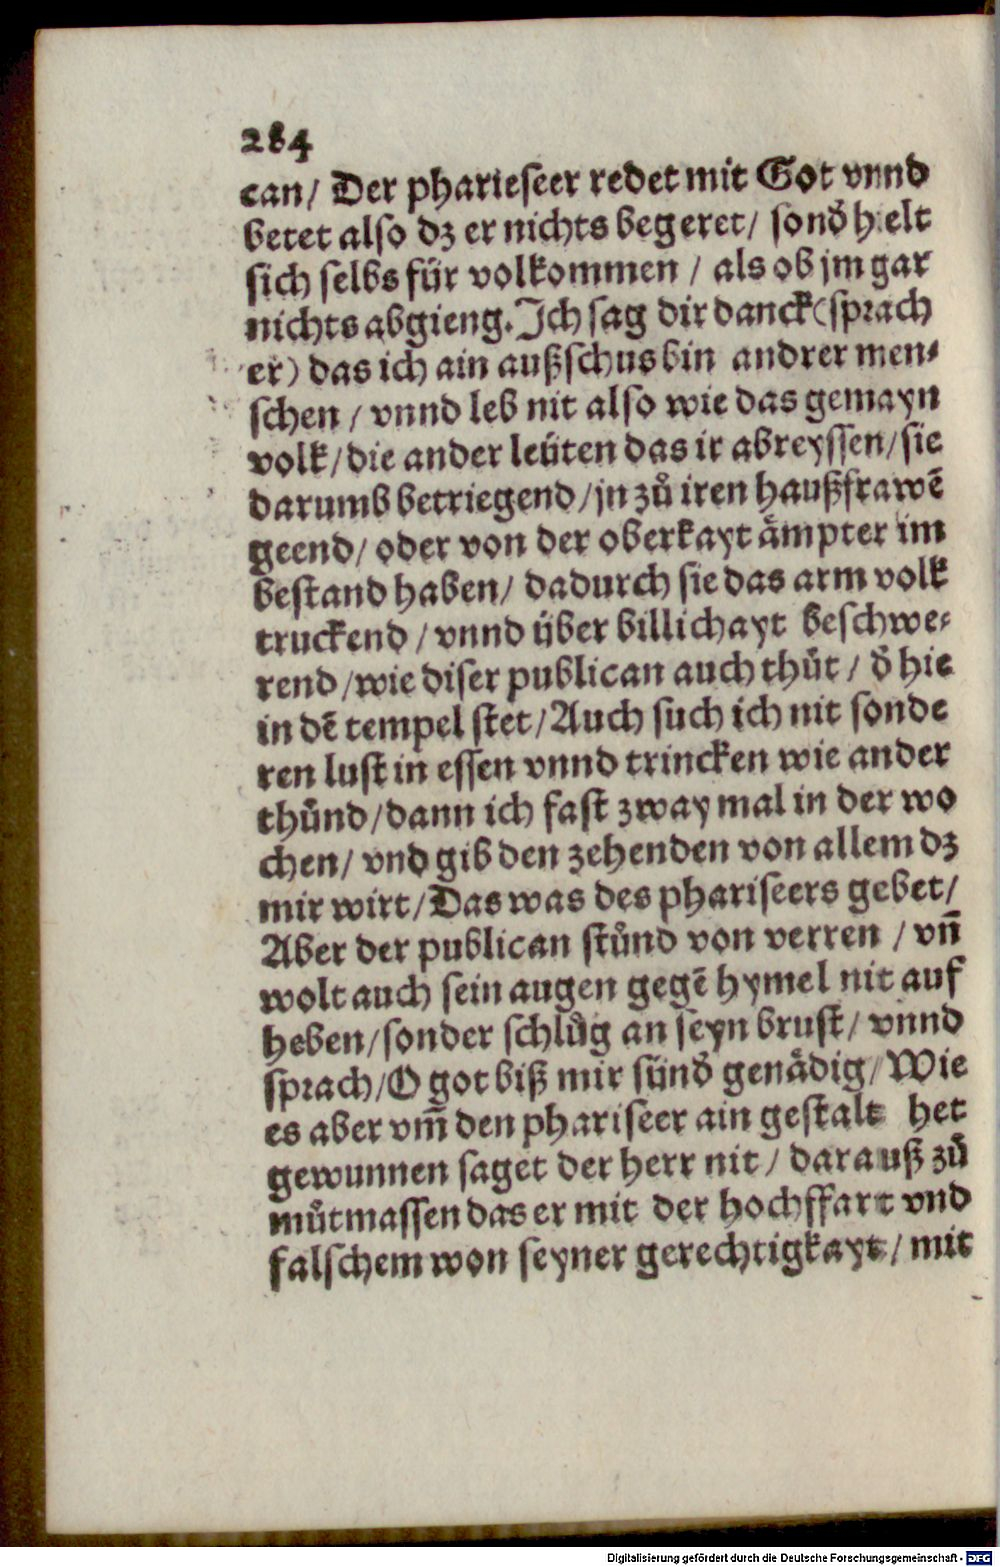 284
can/ Der pharieseer redet mit Got vnnd
betet also dz er nichts begeret/ sond̄ hielt
sich selbs für volkommen / als ob jm gar
nichts abgieng. Ich sag dir danck (sprach
er) das ich ain außschus bin andrer men⸗
schen / vnnd leb nit also wie das gemayn
volk/ die ander leüten das ir abreyssen/ sie
darumb betriegend/ jn zů iren haußfrawē
geend/ oder von der oberkayt ämpter im
bestand haben/ dadurch sie das arm volk
truckend / vnnd über billichayt beschwe⸗
rend / wie diser publican auch thůt / d̄ hie
in dē tempel stet/ Auch such ich nit sonde
ren lust in essen vnnd trincken wie ander
thůnd/ dann ich fast zway mal in der wo
chen/ vnd gib den zehenden von allem dz
mir wirt/ Das was des phariseers gebet/
Aber der publican stůnd von verren / vn̄
wolt auch sein augen gegē hymel nit auf
heben/ sonder schlůg an seyn brust/ vnnd
sprach/ O got biß mir sünd̄ genädig/ Wie
es aber vm̄ den phariseer ain gestalt het
gewunnen saget der herr nit / darauß zů
můtmassen das er mit der hochffart vnd
falschem won seyner gerechtigkayt/ mit
Digitalisierung gefördert durch die Deutsche Forschungsgemeinschaft - DFG